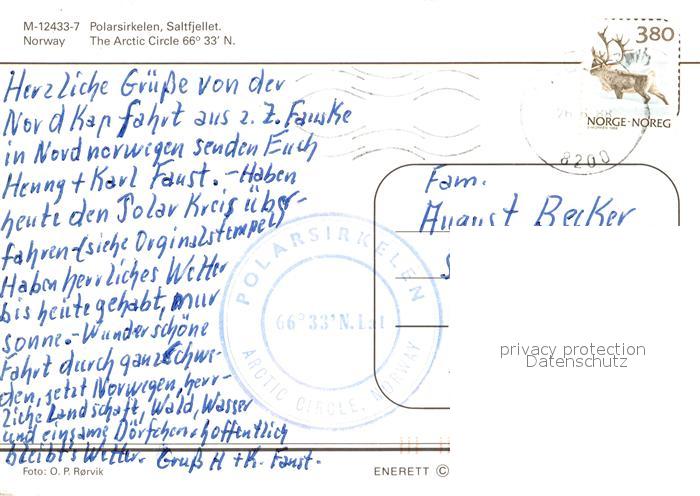 M-12433-7 Polarsirkelen, Saltfjellet.
Norway The Arctic Circle 66° 33' N.
380
NORGE·NOREG
8200
Herzliche Grüße von der
Nord Kap fahrt aus z. Z. Fauske
in Nordnorwegen senden Euch
Henny + Karl Faust. - Haben
heute den Polar Kreis über-
fahren - (siehe Orginalstempel)
Haben herrliches Wetter
bis heute gehabt, nur
sonne. - Wunderschöne
Fahrt durch ganz Schwe-
den, jetzt Norwegen, herr-
liche Landschaft, Wald, Wasser
und einsame Dörfchen. hoffentlich
bleibt's Wetter. Gruß H + K. Faust.
Fam.
August Becker
POLARSIRKELEN
66° 33' N. Lat
ARCTIC CIRCLE, NORWAY
privacy protection
Datenschutz
Foto: O. P. Rørvik
ENERETT ©